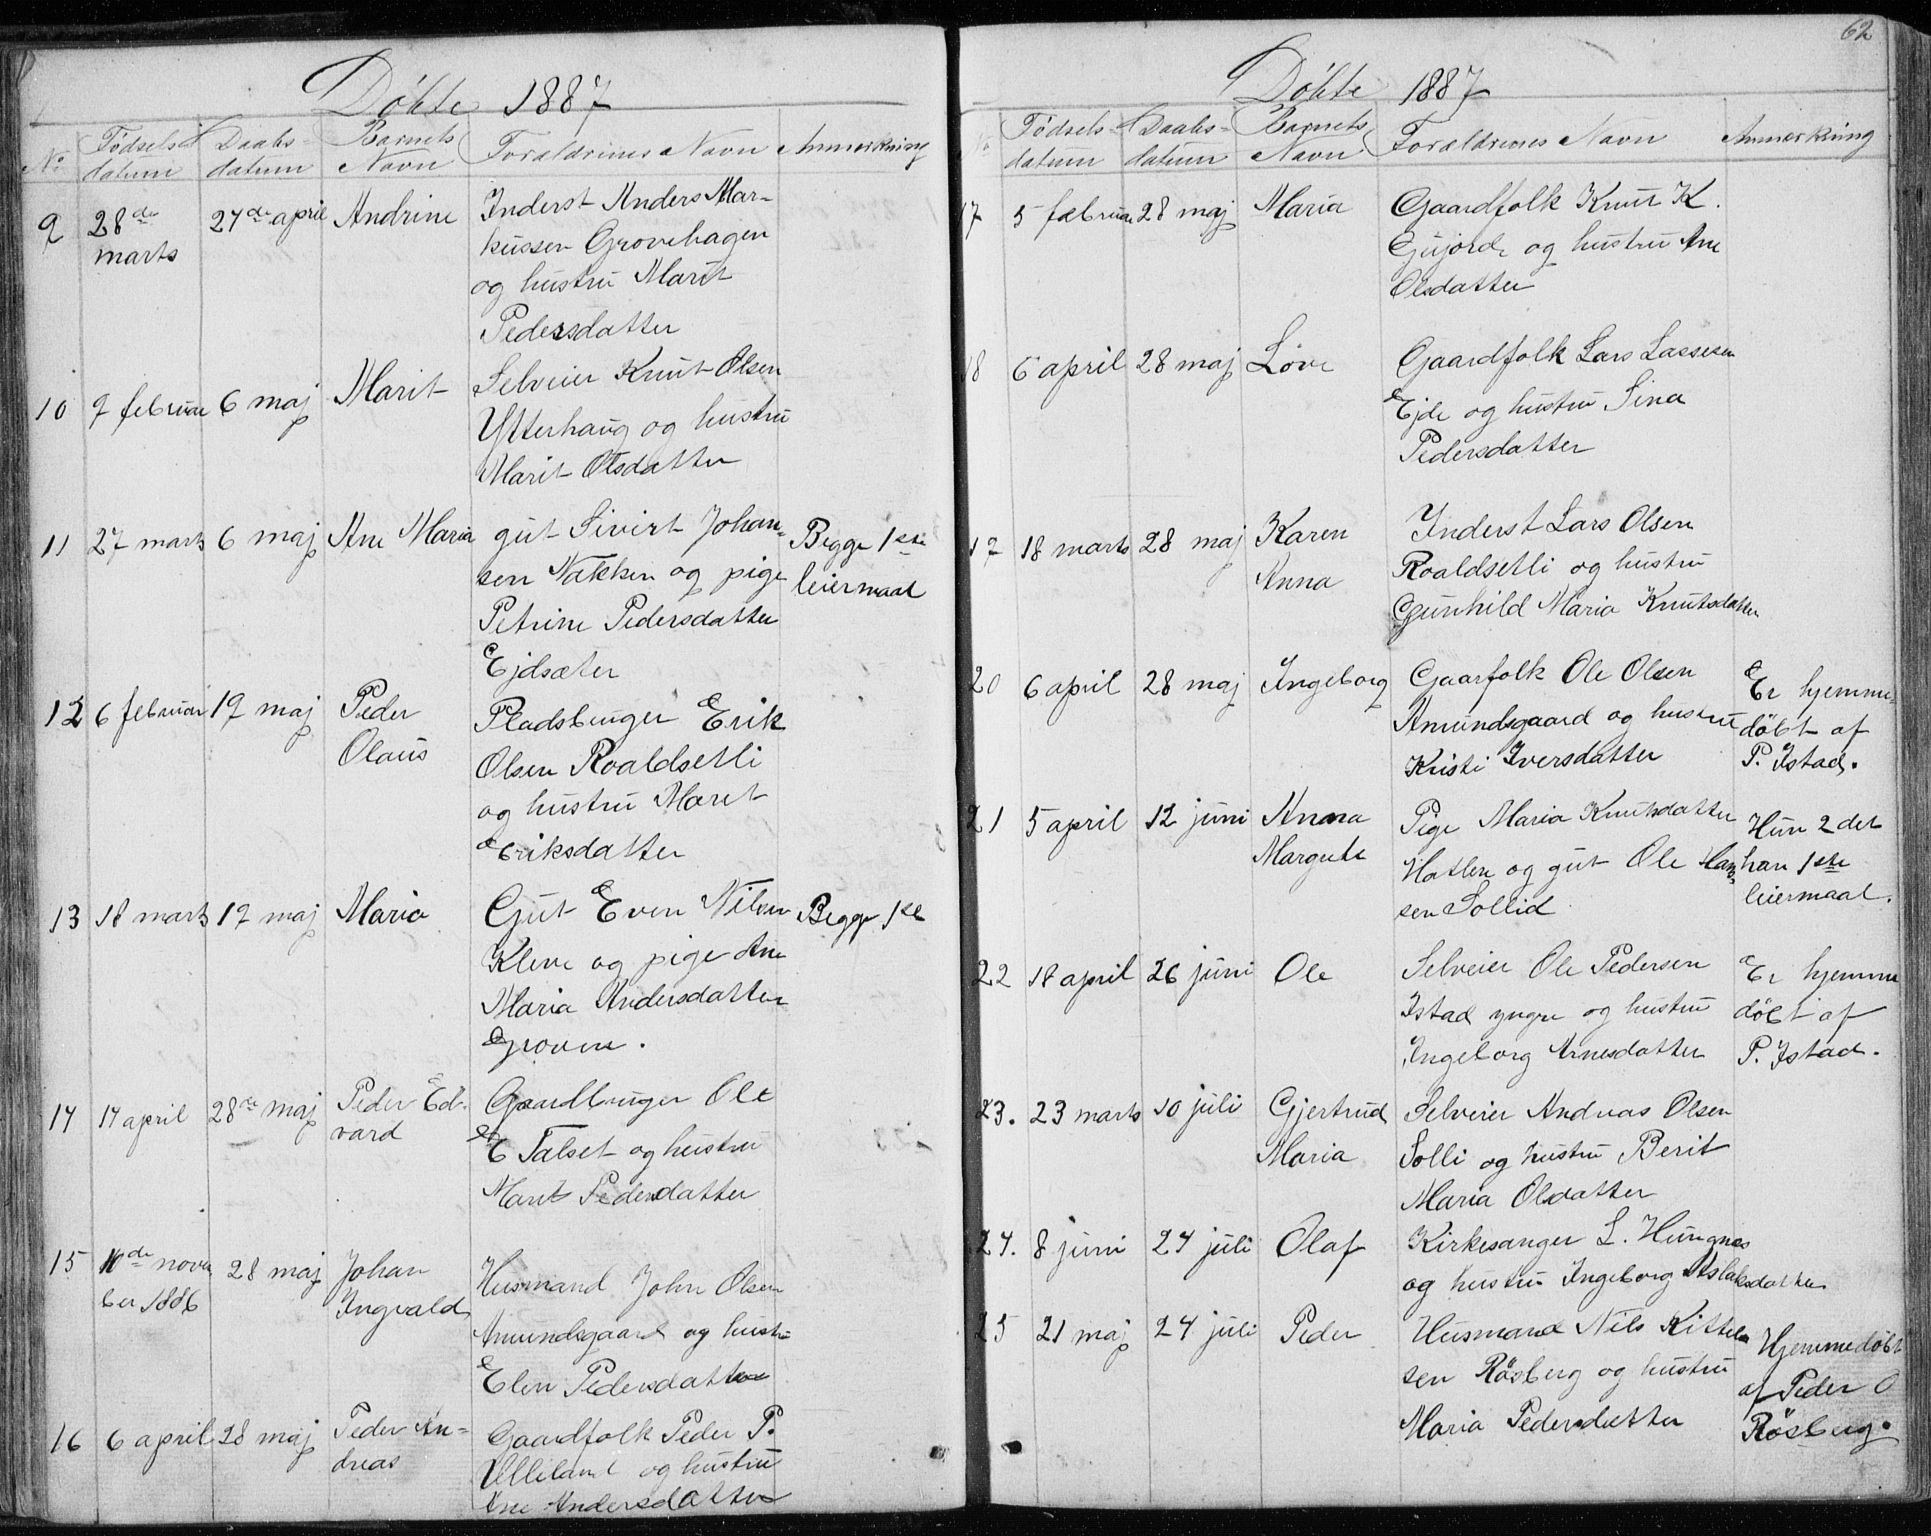 Döbte 1887
No Fødsels datum Daabs- datum Barnets Navn Forældrenes Navn Anmerkning
9 28de marts 27de april Andrine Inderst Anders Mar-
kussen Grovehagen
og hustru Marit
Pedersdatter
10 9 februar 6 maj Marit Selveier Knut Olsen
Ytterhaug og hustru
Marit Olsdatter
11 27 marts 6 maj Ane Maria gut Sivert Johan- Begge 1ste
sen Nakken og pige leiermaal
Petrine Pedersdatter
Ejdsæter
12 6 februar 19 maj Peder Pladsbruger Erik
Olaus Olsen Roaldsetli
og hustru Marit
Eriksdatter
13 18 marts 19 maj Maria Gut Even Nilsen Begge 1ste
Kleve og pige Ane
Maria Andersdatter
Grovene.
14 14 april 28de maj Peder Ed- Gaardbruger Ole
vard E Talset og hustru
Marit Pedersdatter
15 10de novem 28 maj Johan Husmand John Olsen
ber 1886 Ingvald Amundsgaard og hustru
Elen Pedersdatter
16 6 april 28 maj Peder An- Gaardfolk Peder P.
dreas Ulleland og hustru
Ane Andersdatter
62
Döbte 1887
No Fødsels- datum Daabs- datum Barnets Navn Forældrenes Navn Anmerkning
17 5 februar 28 maj Maria Gaardfolk Knut K.
Gujorde og hustru Ane
Olsdatter
18 6 april 28 maj Löve Gaardfolk Lars Lassesen
Ejde og hustru Sina
Pedersdatter
19 18 marts 28 maj Karen Inderst Lars Olsen
Anna Roaldsetli og hustru
Gunhild Maria Knutsdatter
20 6 april 28 maj Ingeborg Gaarfolk Ole Olsen Er hjemme-
Amundsgaard og hustru döbt af
Kristi Iversdatter P. Istad.
21 5 april 12 juni Anna Pige Maria Knutsdatter Hun 2det
Margrete Hatlen og gut Ole Han- han 1ste
sen Sollid leiermaal.
22 18 april 26 juni Ole Selveier Ole Pedersen Er hjemme
Istad yngre og hustru döbt af
Ingeborg Arnesdatter P. Istad.
23. 23 marts 10 juli Gjertrud Selveier Andreas Olsen
Maria Solli og hustru Berit
Maria Olsdatter
24. 8 juni 24 juli Olaf Kirkesanger L. Hungnes
og hustru Ingeborg Aslaksdatter
25 21 maj 24 juli Peder Husmand Nils Kittel Hjemmedöbt
sen Rösberg og hustru af Peder O
Maria Pedersdatter Rösberg.